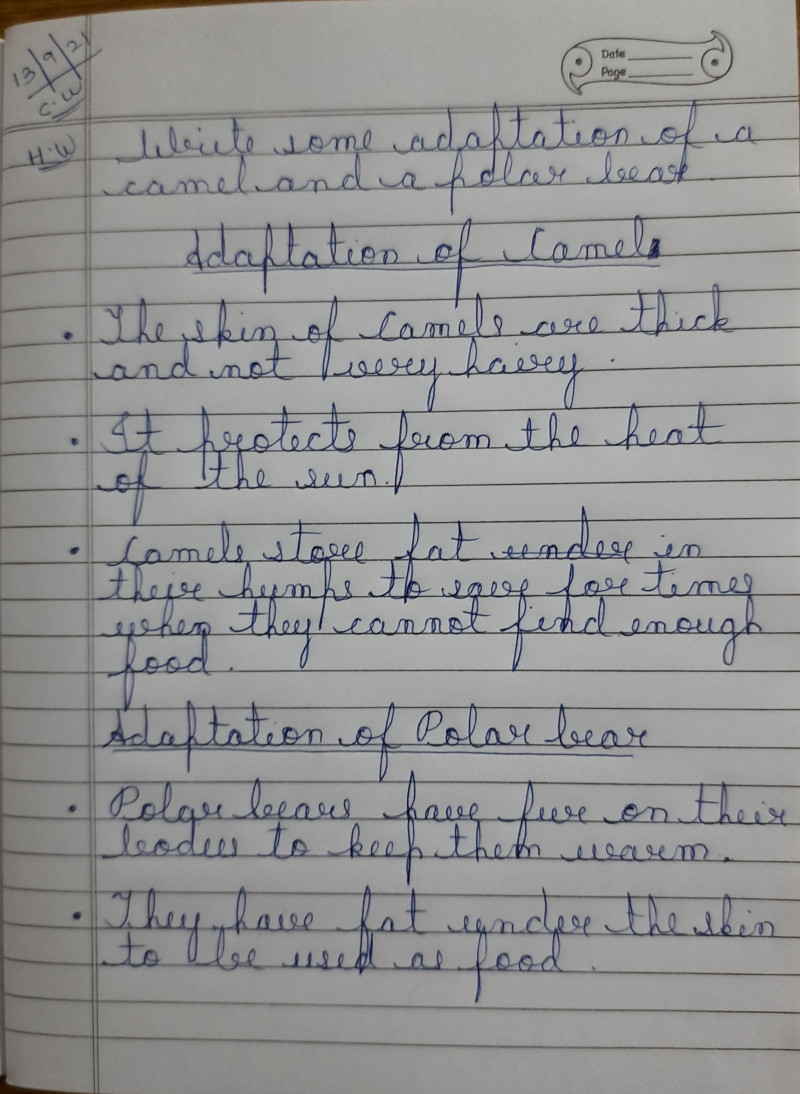 13/9/21
C.W
Date
Page
H.W
Write some adaptation of a
camel and a polar bear
Adaptation of Camel
• The skin of Camels are thick
and not very hairy.
• It protects from the heat
of the sun.
• Camels store fat under in
their humps to save for times
when they cannot find enough
food.
Adaptation of Polar bear
• Polar bears have fur on their
bodies to keep them warm.
• They have fat under the skin
to be used as food.